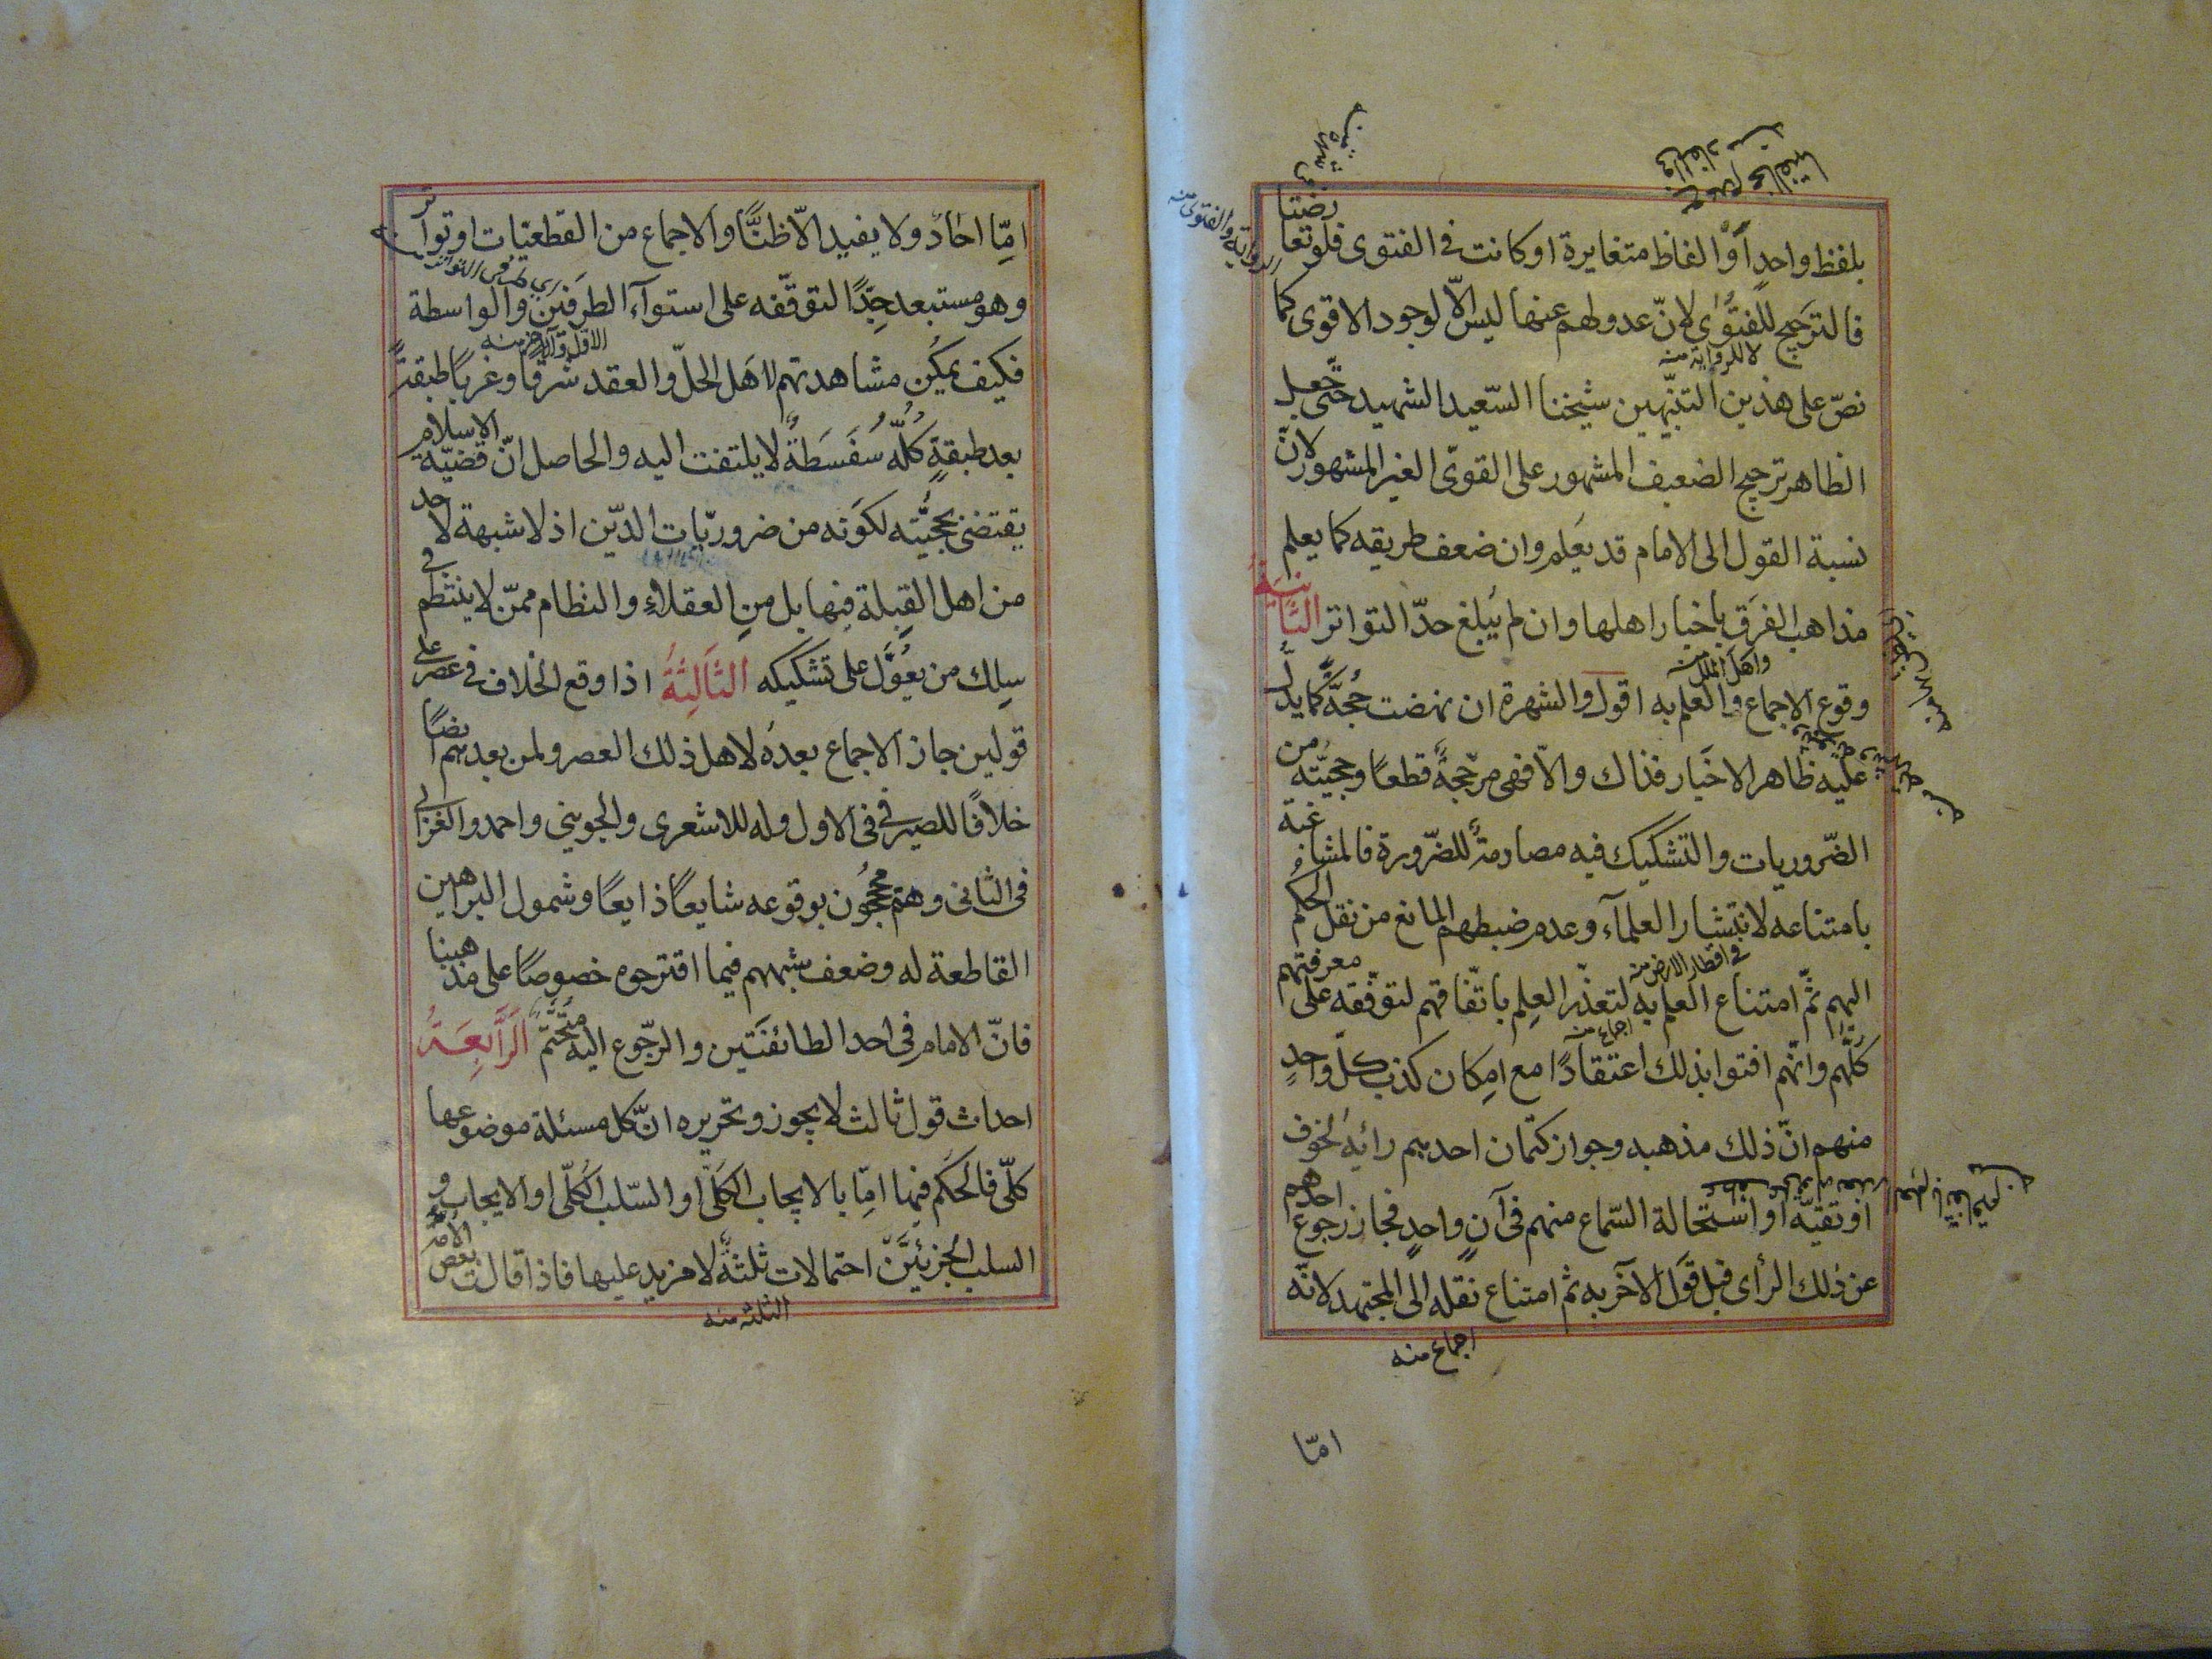 بلفظ واحدٍ او الفاظ متغايرة او كانت فى الفتوى فلو تعارضتا
فالترجيح للفتوٰى لانّ عدولهم عنها ليس الّا لوجود الاقوى كما
لا للرواية منه
نصّ على هذين التنبيهين شيخنا السّعيد الشهيد حتّى جعل
الظاهر ترجيح الضعيف المشهور على القوىّ الغير المشهور لانّ
نسبة القول الى الامام قد يعلم وان ضعف طريقه كما يعلم
مذاهب الفرق باخبار اهلها وان لم يبلغ حدّ التواتر الثّانية
واهل الملل منه
وقوع الاجماع والعلم به اقول والشهرة ان نهضت حجّة كما يدلّ
عليه ظاهر الاخبار فذاك والّا فهى مرجّحةٌ قطعًا وحجيّته من
الضّروريات والتشكيك فيه مصادمةٌ للضّرورة فالمشاغبة
بامتناعه لانتشار العلمآء وعدم ضبطهم المانع من نقل الحكم
فى اقطار الارض منه
اليهم ثمّ امتناع العلم به لتعذّر العلم باتّفاقهم لتوقّفه على معرفتهم
اجماع منه
كلّهم وانّهم افتوا بذلك اعتقادًا مع امكان كذب كلّ واحدٍ
منهم انّ ذلك مذهبه وجواز كتمان احدهم رائيه لخوف
او تقيّه او استحالة السّماع منهم فى آنٍ واحدٍ فجاز رجوع احدهم
عن ذلك الرأى قبل قول الآخر به ثم امتناع نقله الى المجتهد لانّه
اجماع منه
امّا
امّا احادٌ ولا يفيد الّا ظنًّا والاجماع من القطعيّات او تواتر
وهو مستبعد جدًّا لتوقّفه على استوآء الطرفين والواسطة
فكيف يمكن مشاهدتهم لاهل الحلّ والعقد شرقًا وغربًا طبقةً
بعد طبقةٍ كلّه سفسطةٌ لا يلتفت اليه والحاصل انّ قضيّة الاسلام
يقتضى بحجيّته لكونه من ضروريّات الدّين اذ لا شبهة لاحد
من اهل القبلة فيها بل من العقلاء والنظام ممّن لا ينتظم فى
سلك من يعوّل على تشكيكه الثّالثة اذا وقع الخلاف فى عصر على
قولين جاز الاجماع بعده لاهل ذلك العصر ولمن بعدهم ايضًا
خلافًا للصيرفى فى الاول وله للاشعرى والجوينى واحمد والغزالى
فى الثانى وهم محجوجون بوقوعه شايعًا ذايعًا وشمول البراهين
القاطعة له وضعف شبههم فيما اقترحوه خصوصًا على مذهبنا
فانّ الامام فى احد الطائفتين والرّجوع اليه متحتّم الرّابعة
احداث قول ثالث لا يجوز وتحريره انّ كل مسئلة موضوعها
كلّى فالحكم فيها امّا بالايجاب الكلّى او السّلب الكلّى او الايجاب و
السلب الجزئيّين احتمالات ثلثةٌ لا مزيد عليها فاذا قالت بعض الامّة
الثلثه منه